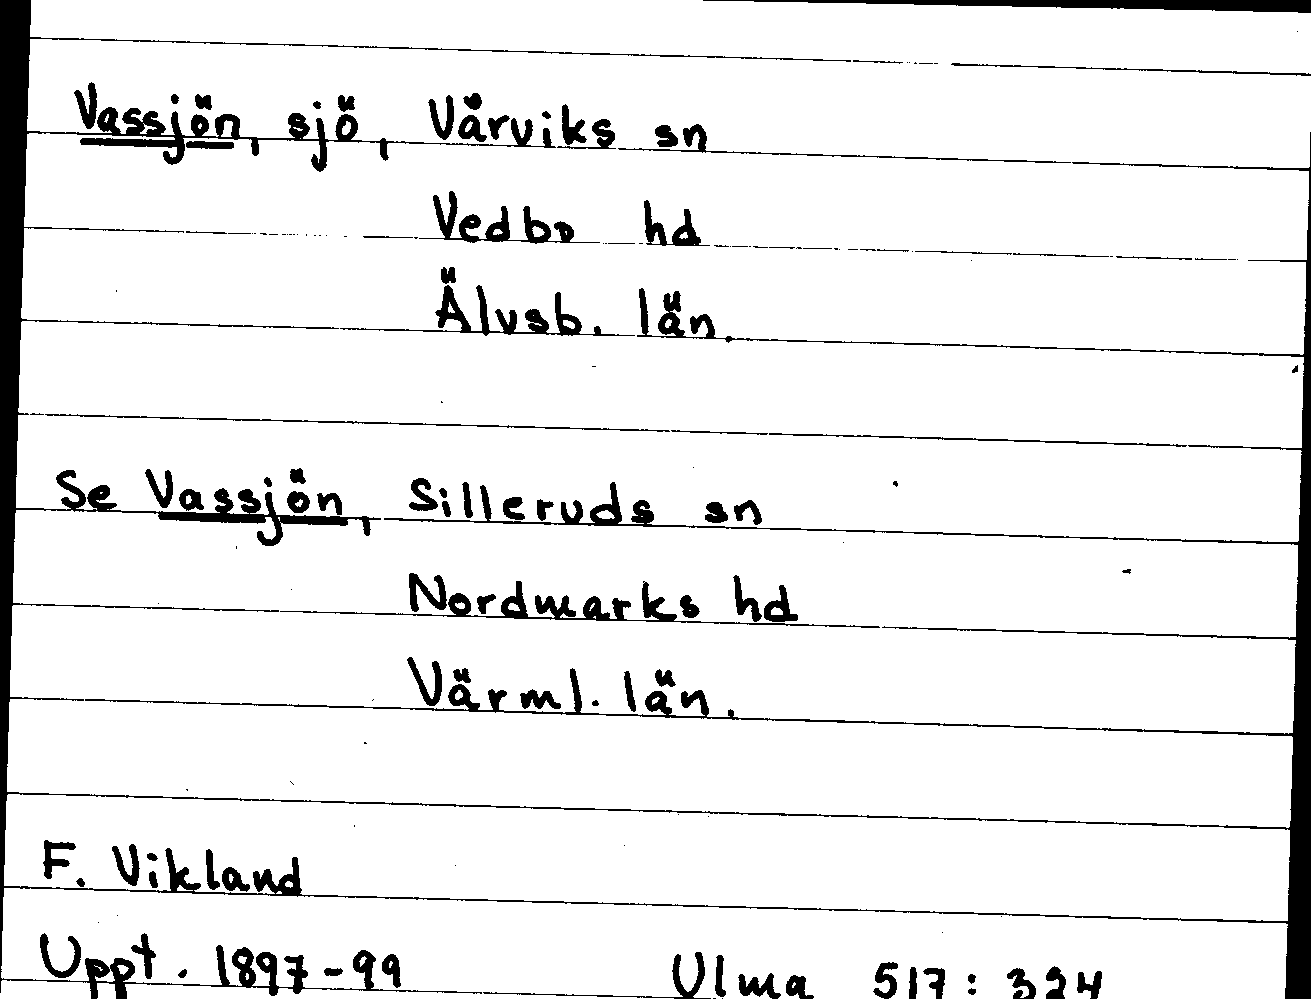 Vassjön, sjö, Vårviks sn
Vedbo hd
Älvsb. län.
Se Vassjön, Silleruds sn
Nordmarks hd
Värml. län.
F. Vikland
Uppt. 1897-99 Ulma 517: 324